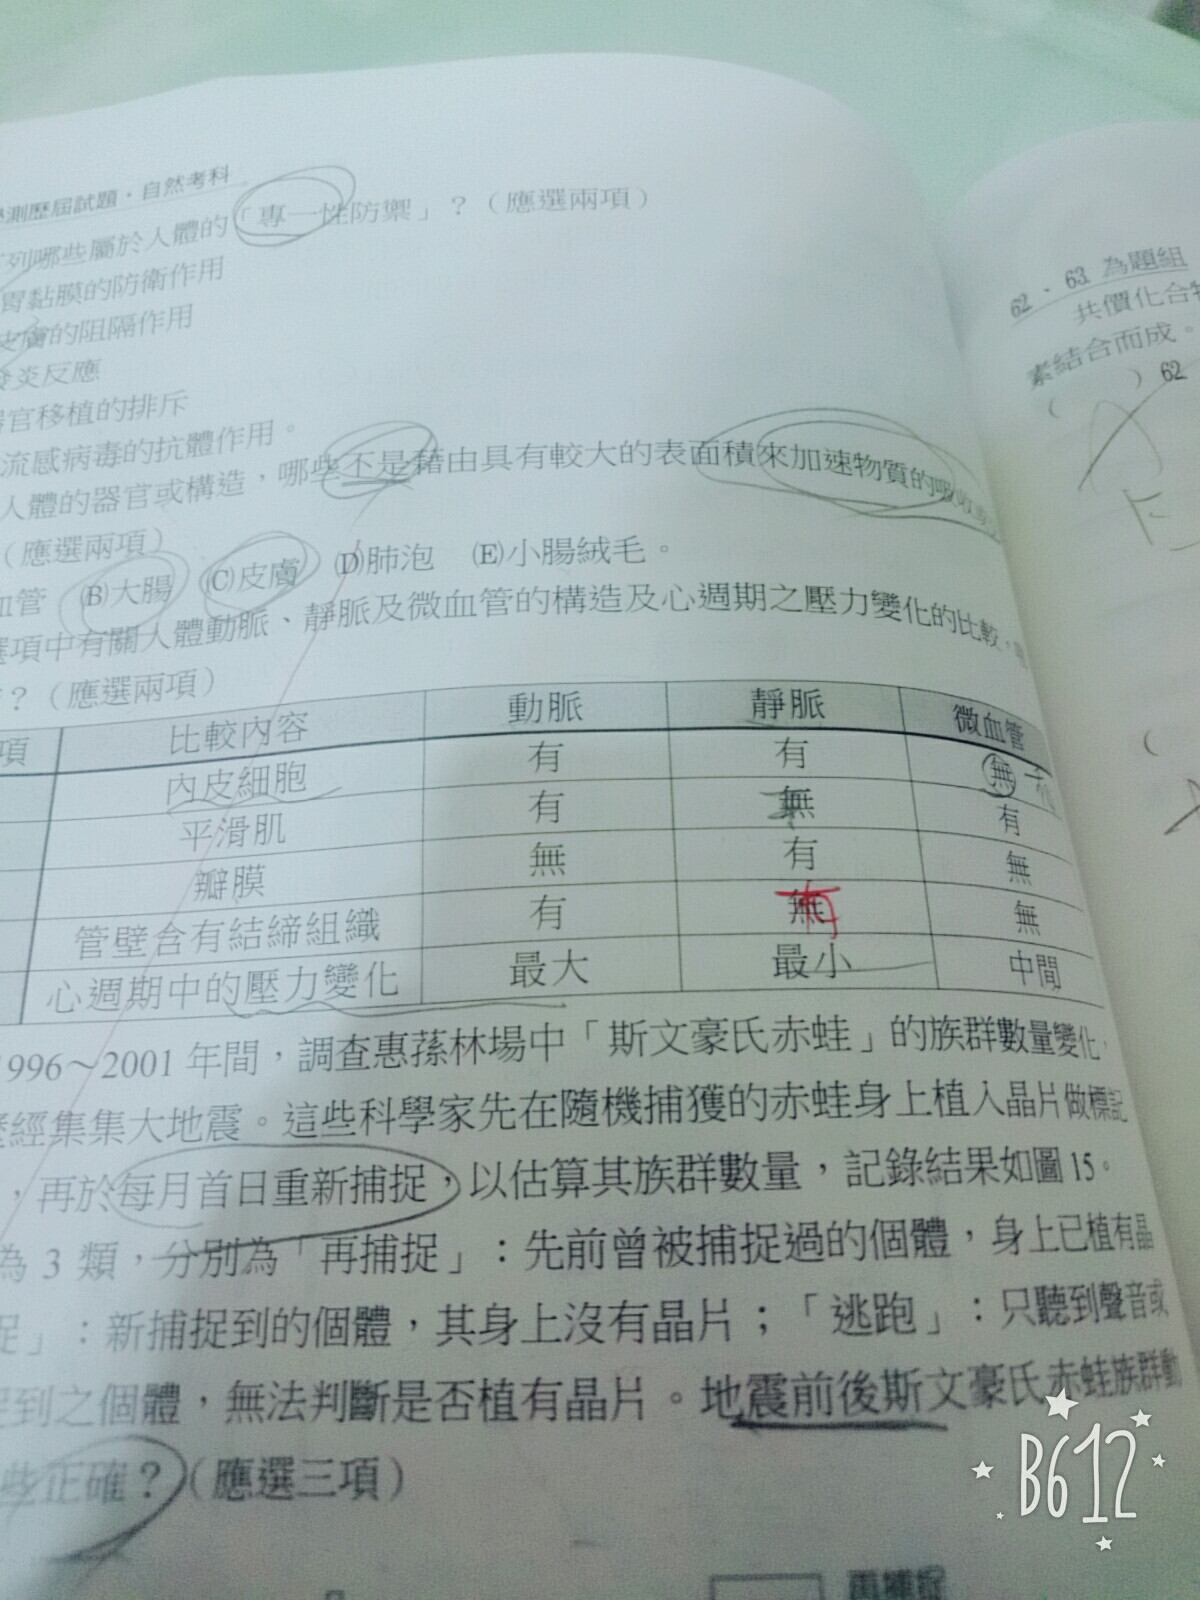 學測歷屆試題．自然考科
列哪些屬於人體的「專一性防禦」？（應選兩項）
胃黏膜的防衛作用
皮膚的阻隔作用
發炎反應
器官移植的排斥
流感病毒的抗體作用。
人體的器官或構造，哪些不是藉由具有較大的表面積來加速物質的吸收
（應選兩項）
血管 (B)大腸 (C)皮膚 (D)肺泡 (E)小腸絨毛。
選項中有關人體動脈、靜脈及微血管的構造及心週期之壓力變化的比較，
？（應選兩項）
項 比較內容 動脈 靜脈 微血管
內皮細胞 有 有 無
平滑肌 有 無 有
瓣膜 無 有 無
管壁含有結締組織 有 無 有 無
心週期中的壓力變化 最大 最小 中間
1996～2001年間，調查惠蓀林場中「斯文豪氏赤蛙」的族群數量變化，
歷經集集大地震。這些科學家先在隨機捕獲的赤蛙身上植入晶片做標記
，再於每月首日重新捕捉，以估算其族群數量，記錄結果如圖15。
為3類，分別為「再捕捉」：先前曾被捕捉過的個體，身上已植有晶
捉」：新捕捉到的個體，其身上沒有晶片；「逃跑」：只聽到聲音或
捉到之個體，無法判斷是否植有晶片。地震前後斯文豪氏赤蛙族群動
些正確？（應選三項）
再捕捉
62、63 為題組
共價化合物
素結合而成。
（ ）62
E
（
B612